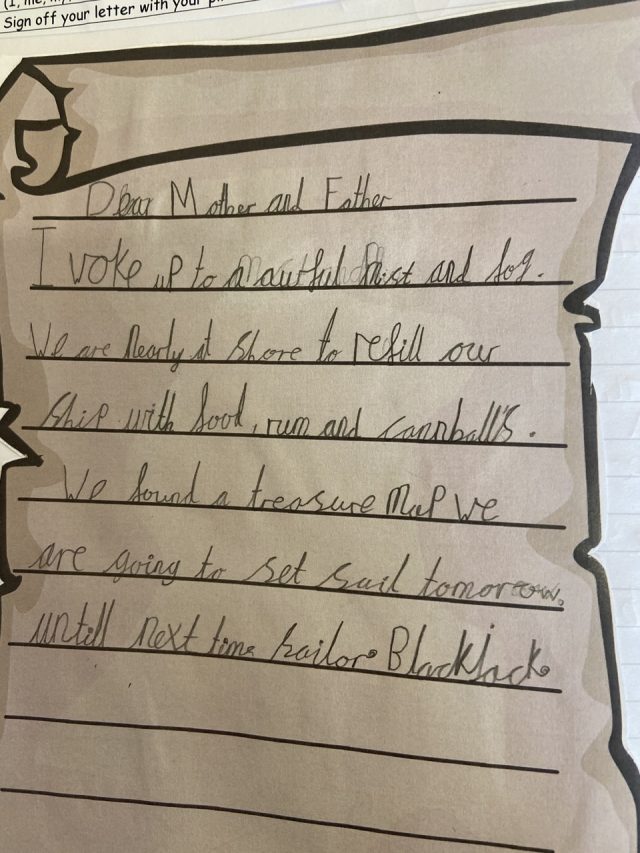 Sign off your letter with your
Dear Mother and Father
I woke up to a awful mist and fog.
We are nearly at shore to refill our
ship with food, rum and cannball's.
We found a treasure map we
are going to set sail tomorrow.
untill next time sailor BlackJack.